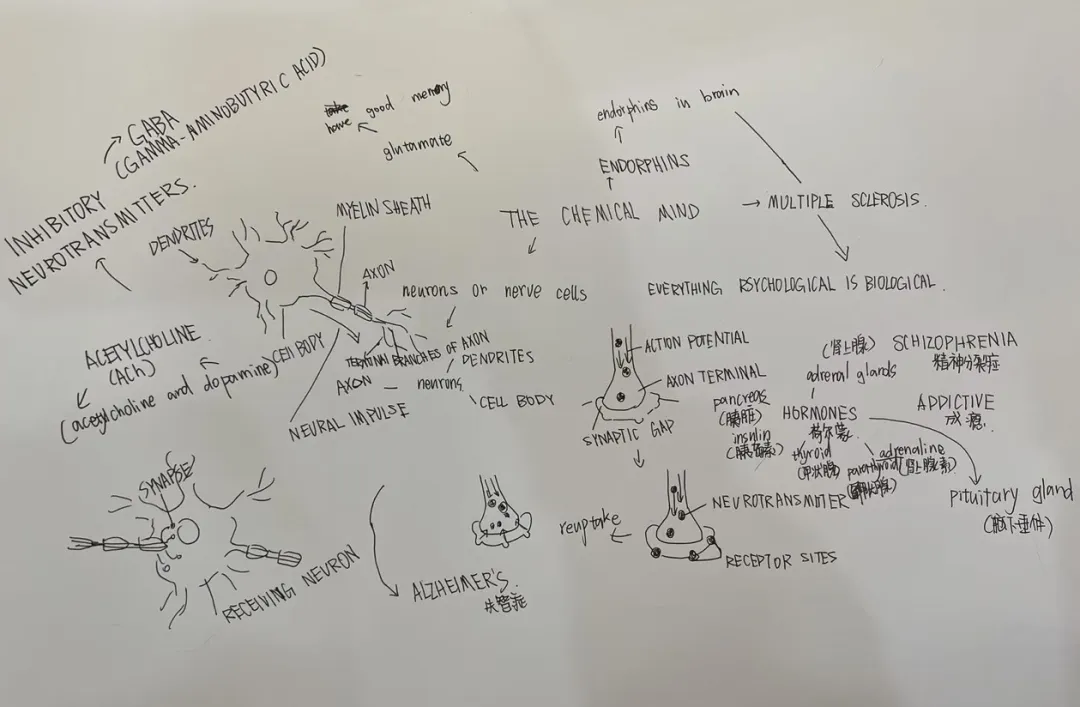 GABA
(GAMMA-AMINOBUTYRIC ACID)
INHIBITORY
NEUROTRANSMITTERS.
take good memory
have
glutamate
endorphins in brain
ENDORPHINS
THE CHEMICAL MIND
MULTIPLE SCLEROSIS.
MYELIN SHEATH
DENDRITES
AXON
neurons or nerve cells
EVERYTHING PSYCHOLOGICAL IS BIOLOGICAL.
ACETYLCHOLINE
(ACh)
(acetylcholine and dopamine)
CELL BODY
TERMINAL BRANCHES OF AXON
DENDRITES
AXON — neurons
CELL BODY
NEURAL IMPULSE
ACTION POTENTIAL
AXON TERMINAL
SYNAPTIC GAP
(肾上腺)
adrenal glands
SCHIZOPHRENIA
精神分裂症
pancreas
(胰脏)
HORMONES
荷尔蒙
ADDICTIVE
成瘾
insulin
(胰岛素)
thyroid
(甲状腺)
parathyroid
adrenaline
(肾上腺素)
pituitary gland
(脑下垂体)
SYNAPSE
RECEIVING NEURON
ALZHEIMER'S.
reuptake
NEUROTRANSMITER
RECEPTOR SITES